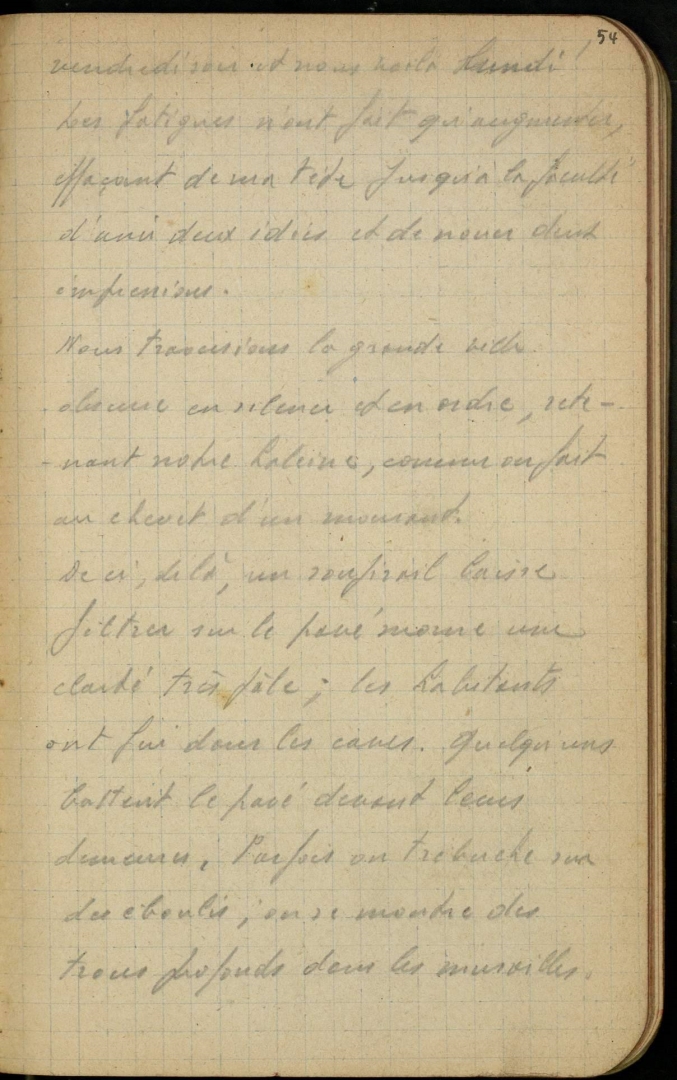 54
vendredi soir et nous voilà Lundi !
Les fatigues n'ont fait qu'augmenter,
effaçant de ma tête jusqu'à la faculté
d'unir deux idées et de nouer deux
impressions.
Nous traversions la grande ville
obscure en silence et en ordre, rete-
-nant notre haleine, comme on fait
au chevet d'un mourant.
De ci, de là, un soupirail laisse
filtrer sur le pavé morne une
clarté très pâle ; les habitants
ont fui dans les caves. Quelqu'uns
battent le pavé devant leurs
demeures. Parfois on trébuche sur
des éboulis ; on se montre des
trous profonds dans les murailles.